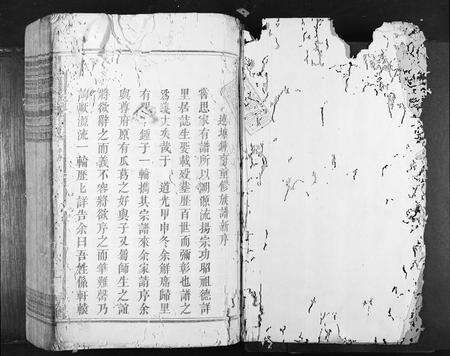 塘鍾重修族譜新序
嘗思家有譜所以溯源流揚宗功昭祖德詳
里居誌生娶載歿葬歷百世而彌彰也譜之
大矣哉于　道光甲申冬余解席歸里
有　鍾于一輪攜其宗譜來余家請序余
與尊府原有瓜葛之好與子又舊師生之誼
將欲辭之而義不容將欲序之而筆難罄乃
源流一輪歷歷詳告余曰吾姓係軒轅